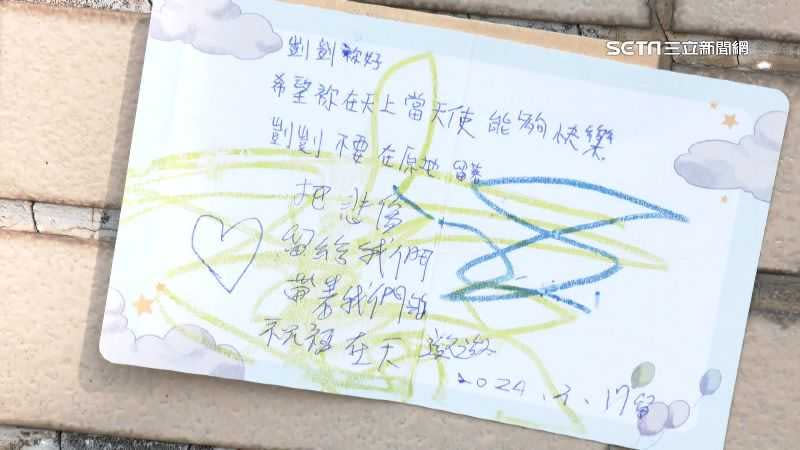 SETN三立新聞網
剴剴祢好
希望祢在天上當天使 能夠快樂
剴剴 不要在原地 留著
把 悲傷
留給我們
帶著我們的
祝福 在天 遨遊
2024.3.17留